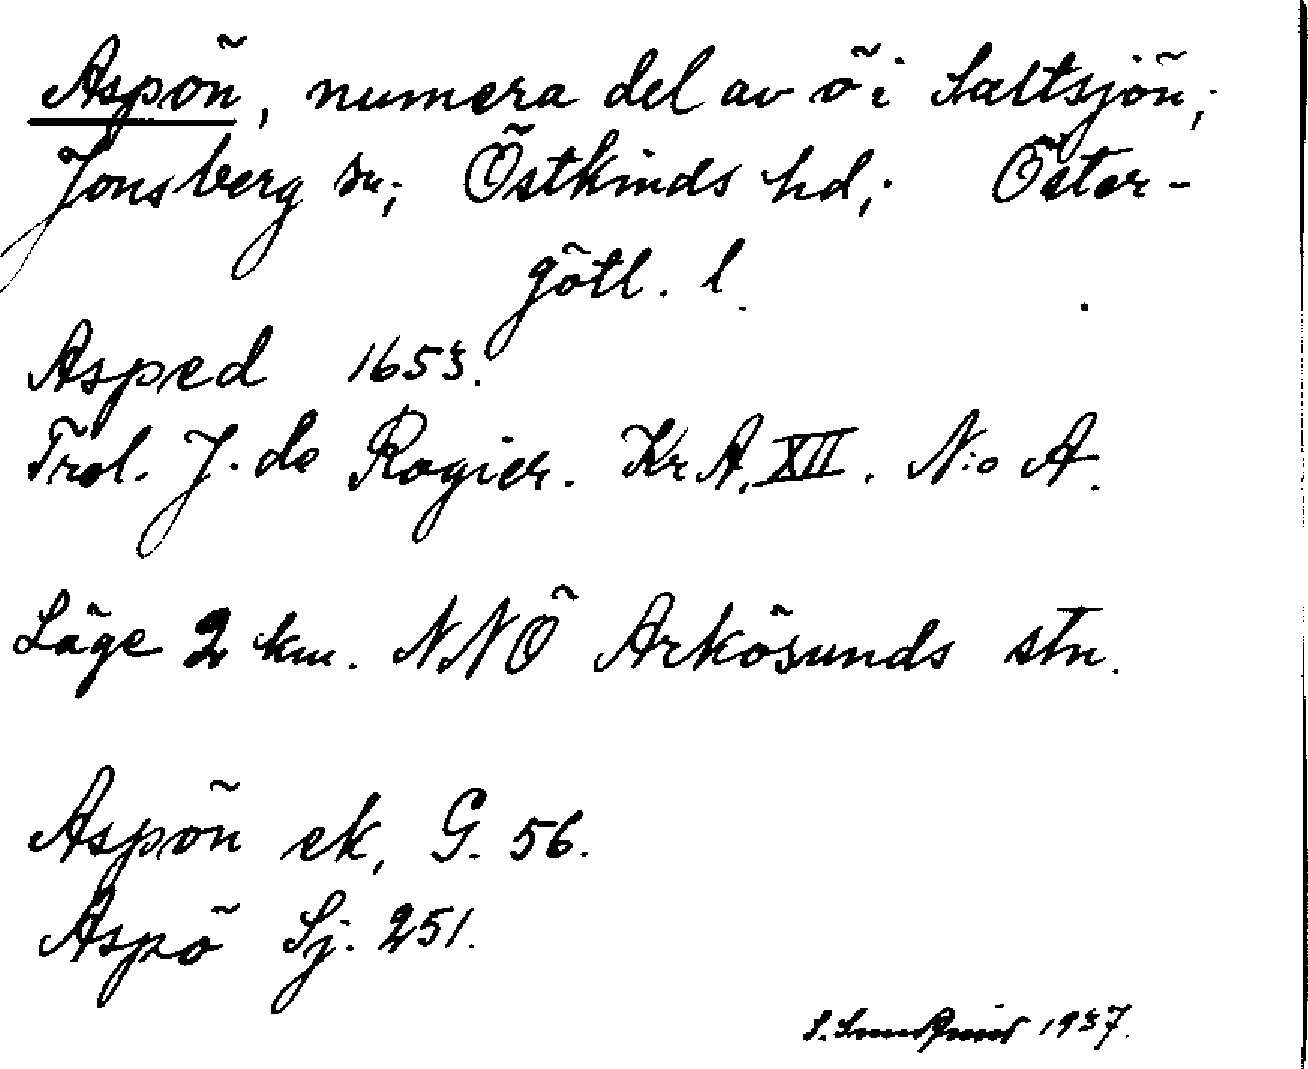 Aspön, numera del av ö i Saltsjön;
Jonsberg sn; Östkinds hd; Öster-
götl. l.
Asped 1653.
Trol. J. de Rogier. Kr A. XII. N:o A.
Läge 2 km. NNÖ Arkösunds stn.
Aspön ek, G. 56.
Aspö Sj. 251.
S. Sundqvist 1937.